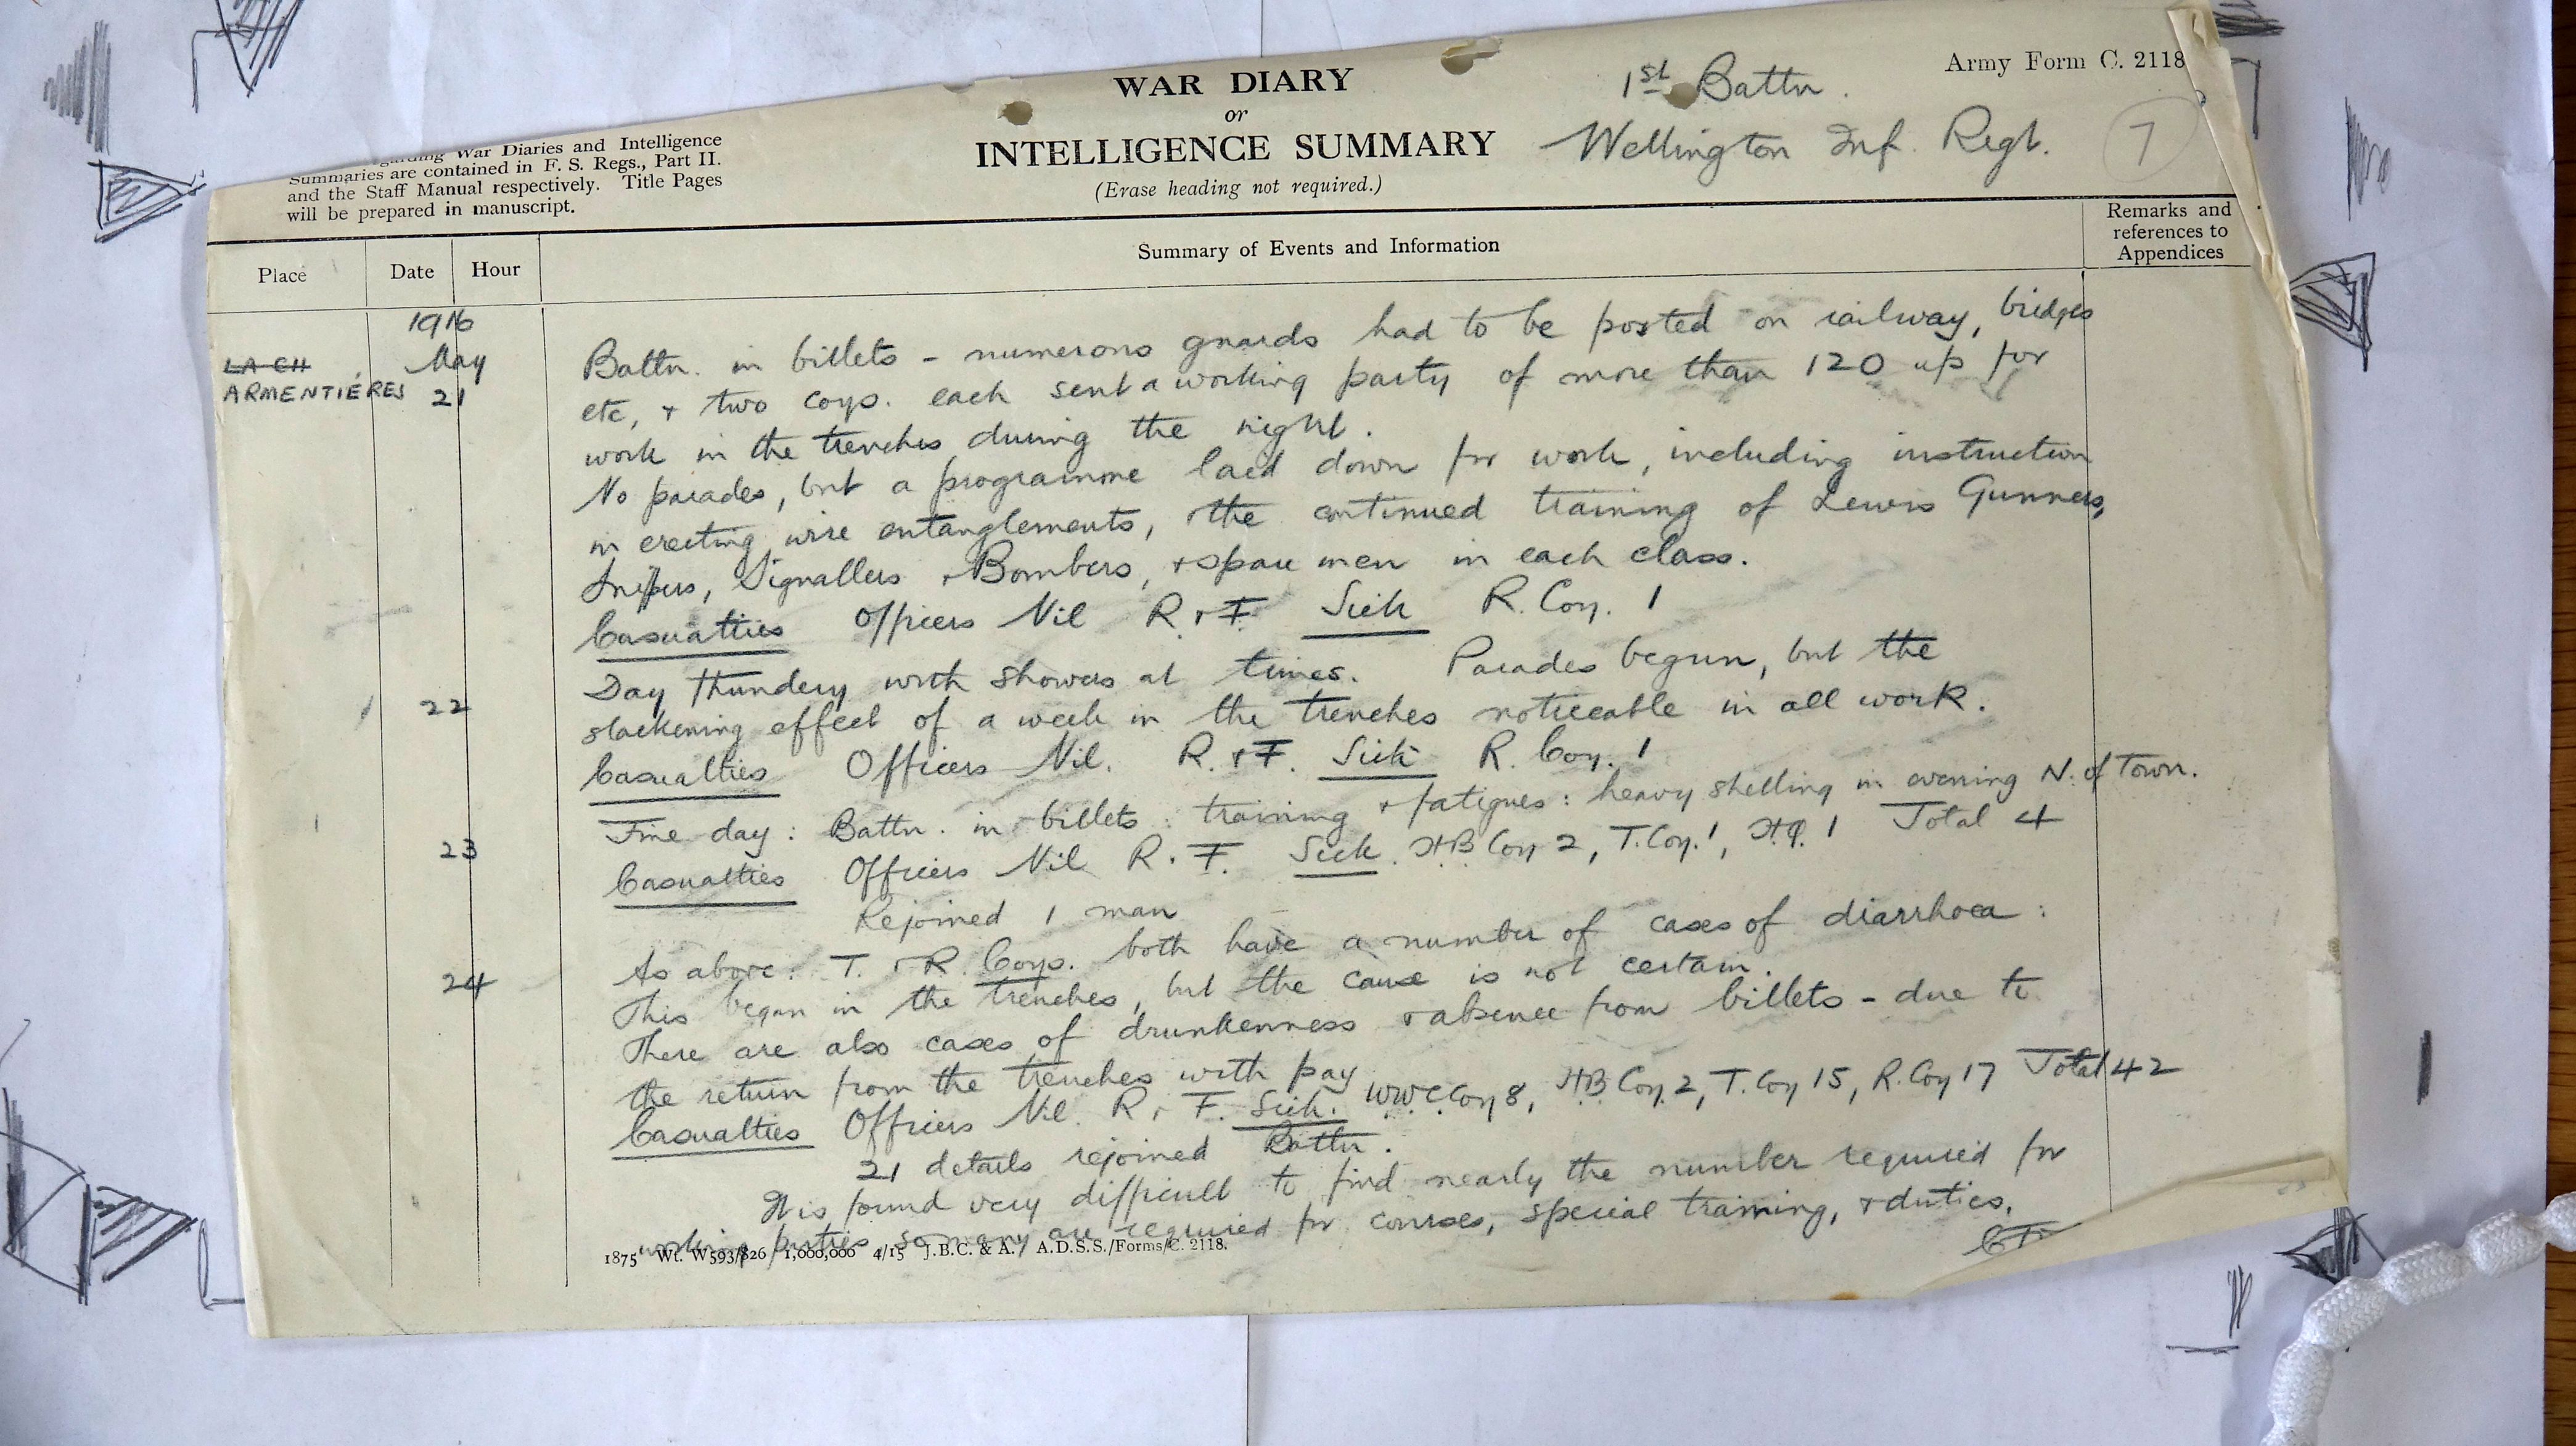 WAR DIARY
or
INTELLIGENCE SUMMARY
(Erase heading not required.)
1st Battn.
Wellington Inf. Regt.
Army Form C. 2118
7
regarding War Diaries and Intelligence
Summaries are contained in F. S. Regs., Part II.
and the Staff Manual respectively. Title Pages
will be prepared in manuscript.
Place
Date
Hour
Summary of Events and Information
Remarks and
references to
Appendices
1916
LA CH
May
ARMENTIÉRES
21
Battn. in billets - numerous guards had to be posted on railway, bridges
etc, + two coys. each sent a working party of more than 120 up for
work in the trenches during the night.
No parades, but a programme laid down for work, including instruction
in erecting wire entanglements, the continued training of Lewis Gunners,
Snipers, Signallers + Bombers, + spare men in each class.
Casualties Officers Nil R. + F. Sick R. Coy. 1
22
Day thundery with showers at times. Parades begun, but the
slackening effect of a week in the trenches noticeable in all work.
Casualties Officers Nil. R. + F. Sick R. Coy. 1
23
Fine day: Battn. in billets: training + fatigues: heavy shelling in evening N. of Town.
Casualties Officers Nil R. F. Sick. H.B. Coy 2, T. Coy. 1, H.Q. 1 Total 4
Rejoined 1 man
24
As above: T. + R. Coys. both have a number of cases of diarrhoea:
This began in the trenches, but the cause is not certain.
There are also cases of drunkenness + absence from billets - due to
the return from the trenches with pay
Casualties Officers Nil. R. + F. Sick. W.W.C. Coy 8, H.B. Coy. 2, T. Coy 15, R. Coy 17 Total 42
21 details rejoined Battn.
It is found very difficult to find nearly the number required for
working parties so many are required for courses, special training, + duties.
1875 Wt. W593/826 1,000,000 4/15 J.B.C. & A. A.D.S.S./Forms/C. 2118.